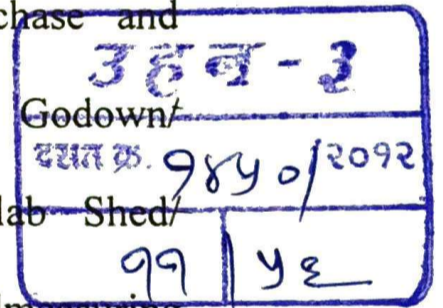 chase and
उहन - ३
Godown/
दस्त क्र. १४५०/२०१२
lab Shed/
११ | ५६